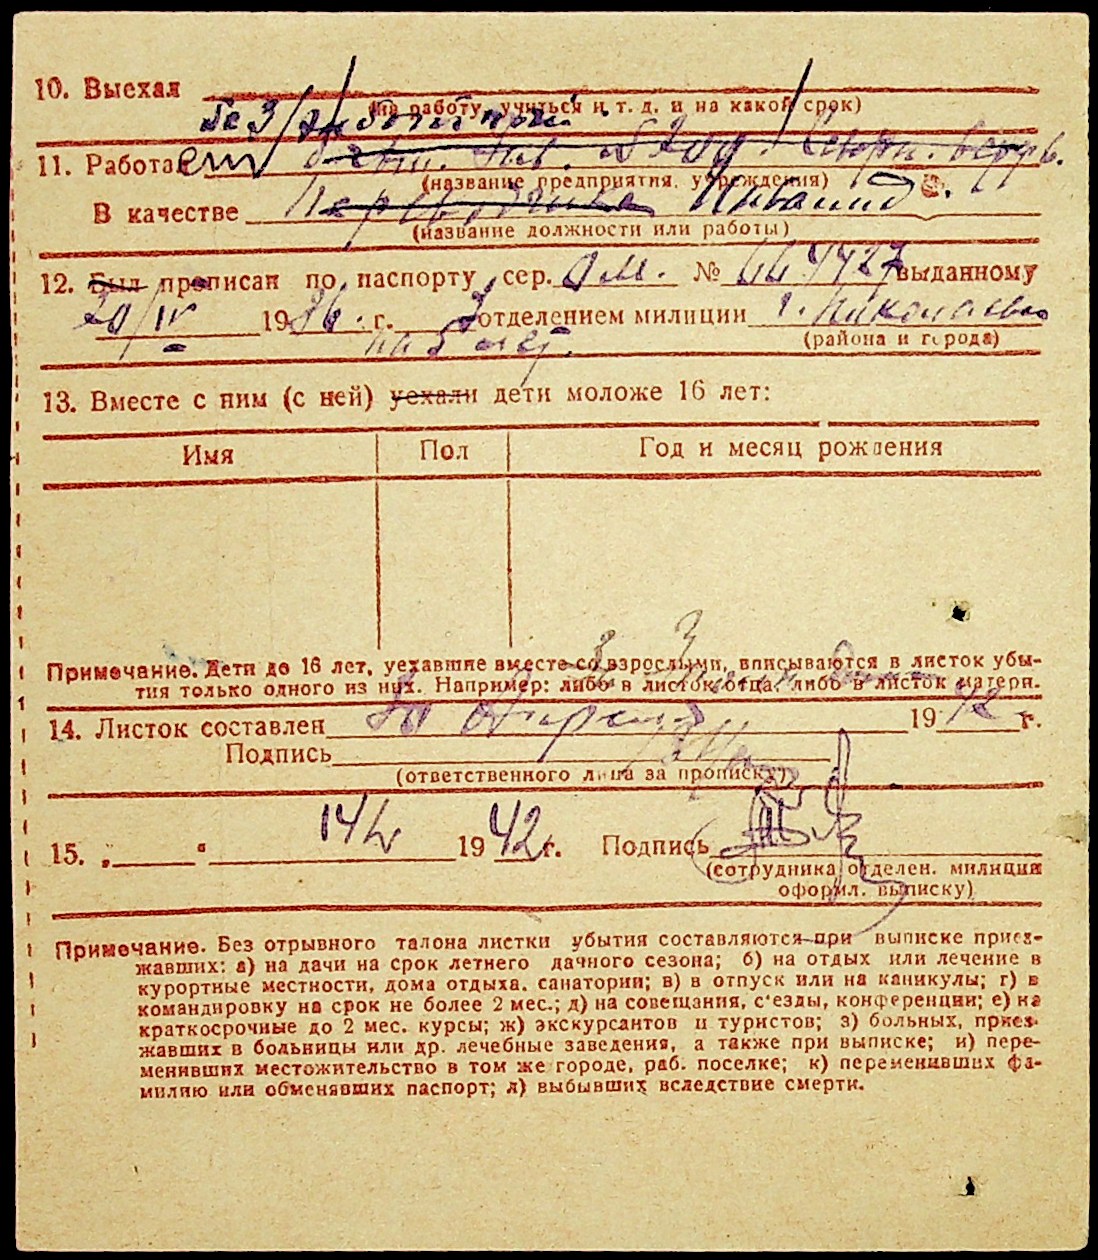 10. Выехал
(на работу, учиться и т. д. и на какой срок)
11. Работает
(название предприятия, учреждения)
В качестве Инвалид
(название должности или работы)
12. Был прописан по паспорту сер. № выданному
20/IV 1936 г. 3 отделением милиции г. Николаева
(района и города)
13. Вместе с ним (с ней) уехали дети моложе 16 лет:
Имя Пол Год и месяц рождения
Примечание. Дети до 16 лет, уехавшие вместе со взрослыми, вписываются в листок убы-
тия только одного из них. Например: либо в листок отца, либо в листок матери.
14. Листок составлен 1942 г.
Подпись
(ответственного лица за прописку)
15. „ “ 14/V 1942 г. Подпись
(сотрудника отделен. милиции
оформл. выписку)
Примечание. Без отрывного талона листки убытия составляются при выписке приез-
жавших: а) на дачи на срок летнего дачного сезона; б) на отдых или лечение в
курортные местности, дома отдыха, санатории; в) в отпуск или на каникулы; г) в
командировку на срок не более 2 мес.; д) на совещания, с'езды, конференции; е) на
краткосрочные до 2 мес. курсы; ж) экскурсантов и туристов; з) больных, приез-
жавших в больницы или др. лечебные заведения, а также при выписке; и) пере-
менивших местожительство в том же городе, раб. поселке; к) переменивших фа-
милию или обменявших паспорт; л) выбывших вследствие смерти.